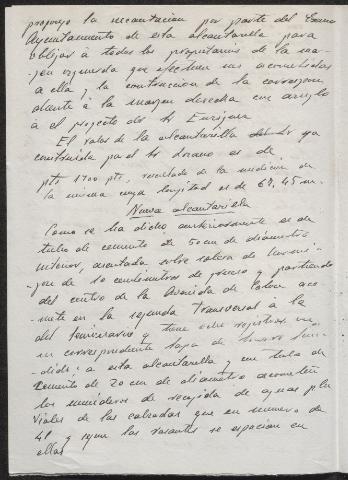 propongo la incautacion por parte del Excmo
Ayuntamiento de esta alcantarilla para
obligar á todos los propietarios de la mar-
gen izquierda que efectuen sus acometidas
á ella y la construccion de la correspon
diente á la margen derecha con arreglo
á el proyecto del Sr
El valor de la alcantarilla del Sr ya
construida por el Sr Lozano es de
pts 1700 pts, resultado de la medicion de
la misma cuya longitud es de 68,45 m.
Nueva alcantarilla
Como se ha dicho anteriormente es de
tubo de cemento de 50 cm de diámetro
interior, asentada sobre solera de hormi-
gon de 10 centimetros de grueso y partiendo
del centro de la Avenida de aco-
mete en la segunda transversal á la
del Seminario y tiene ocho registros con
su correspondiente tapa de hierro fun-
dido; a esta alcantarilla y con tubo de
cemento de 20 cm de diametro acometen
los sumideros de recogida de aguas plu
viales de las calzadas que en numero de
y segun las rasantes se espacian en
ellas